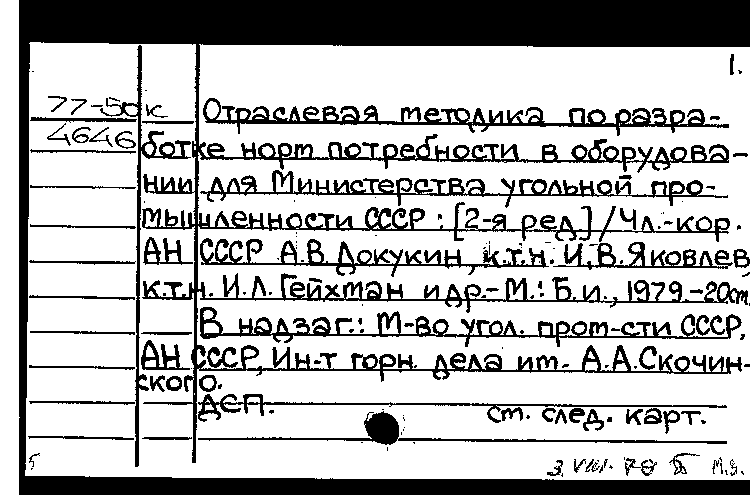 1.
77-50к Отраслевая методика по разра-
4646 ботке норм потребности в оборудова-
нии для Министерства угольной про-
мышленности СССР : [2-я ред.] / Чл.-кор.
АН СССР А.В. Докукин, к.т.н. И.В. Яковлев,
к.т.н. И.Л. Гейхман и др.- М.: Б.и., 1979.-20см
В надзаг.: М-во угол. пром-сти СССР,
АН СССР, Ин-т горн. дела им. А.А. Скочин-
ского.
ДСП. см. след. карт.
3 VIII.